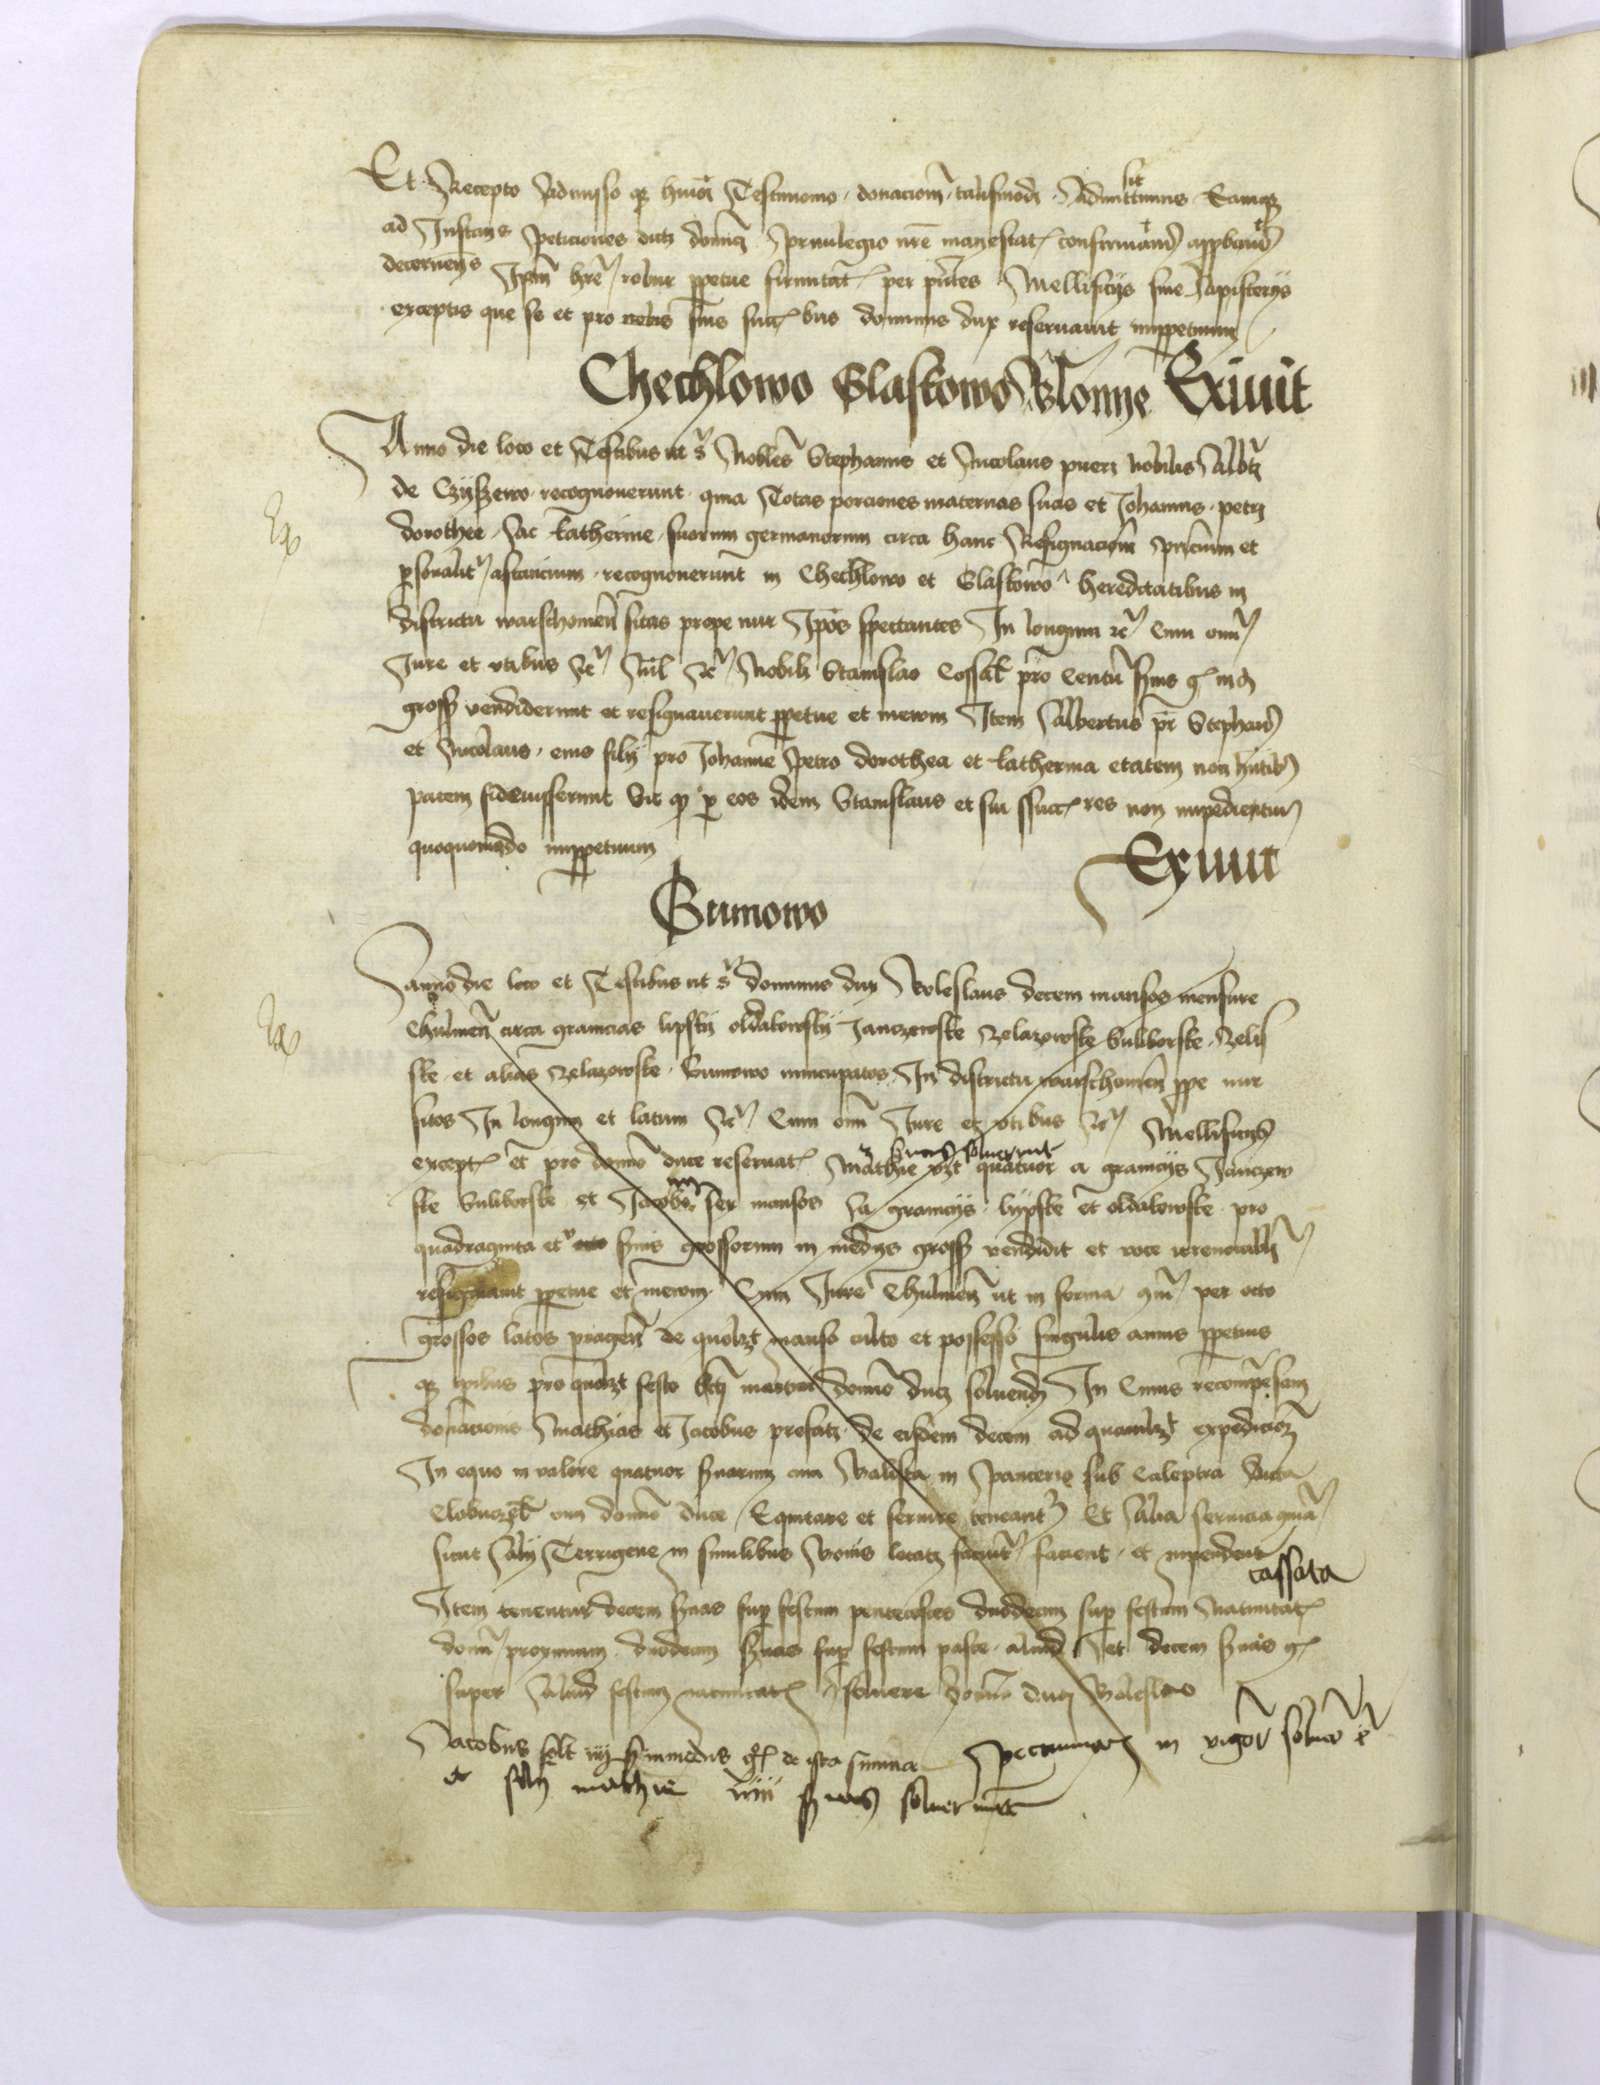 Et Recepto Admisso qz huiꝰdi Testimonio donacionē talismodi Admittimus Eamqz
ad Instans peticiones dictj domicj priuilegio nr̄e maiestatꝭ confirmand approband
decernens Ipm̄ hr̄e robur ppetue firmitatꝭ per pñtes Mellificijs siue Apisterijs
exceptis que se et pro suis succꝭbus dominus dux reseruauit imppetuum
Chechlowo Glaskowo Blonye Exiuit
Anno die loco et Testibus ut sͣ Nobiles Stephanus et Nicolaus pueri nobilis Albtj
de Czyszewo recognouerunt quia Totas porciones maternas suas et Johannis petri
dorothee Ac katherine suorum germanorum circa hanc Resignacionē pñcium et
psonalitꝰ astancium recognouerunt in Chechlowo et Glaskowo hereditatibus in
districtu warschouien sitas prope nur Ipos spectantes In longum rcꝭ Cum omī
Jure et vtibus rcꝭ Nīl rcꝭ Nobili Stanislao Cossak pro Centū sms gꝭ in m
gross vendiderunt et resignauerunt ppetue et in ewm Item Albertus pr Stephand
et Nicolaus eius filij pro Johanne petro dorothea et katherina etatem non hntibꝫ
pacem fideiusserunt Sic qz p eos idem Stanislaus et sui succꝭres non impedientur
quoquomodo imppetuum
Exiuit
Gumowo
Anno die loco et Testibus ut sͣ dominus dux Boleslaus decem mansos mensure
Chulmen circa granicias lipskij oldakowskij Janczewske Zelazowske Suliborske Zelis
ske et alias Zelazowske Gumowo nuncupatos In districtu warschouien ppe nur
sitos In longum et latum rcꝭ Cum omī Jure et vtibus rcꝭ Mellificijs
exceptꝭ et pro domō duce reseruatꝭ Mathie vzt quatuor a granicijs Janczew
soluerunt
ske Suliborske et Jacobo sex mansos A granicijs lypske et oldakowske pro
quadraginta et octo sms grossorum in medijs gross vendidit et voce irreuocabilj
resignauit ppetue et in ewm Cum Jure Chulmen ut in forma cōī per octo
grossos latos pragen de quolzt manso culto et possesso singulis annis ppetuis
qz ipibus pro quolzt festo scti martini domō duci soluend In Cuius recompensam
donacionis Mathias et Jacobus prefatj de eisdem decem ad quamlzt expedicionē
In equo in valore quatuor smarum cum Balista in pancerio sub Caleptra dicta
Clobuczek cum domō duce Equitare et seruire teneantꝰ Et Alia seruicia quā
sicut Alij Terrigene in similibus Bonis locatj faciūt facient et inpendent
cassata
Item tenentur decem smas sup festum pentecostes duodecim sup festum Natiuitatꝭ
domī proximum duodecim smas sup festum pasce aliud et decem smas gꝭ
super Aliud festum natiuitatꝭ soluere domō duci Boleslao
Jacobus solt iiij sm in medijs gꝭ de ista summa pecuniarꝭ in vigor soluere
et filij mathie xviii smas soluerunt